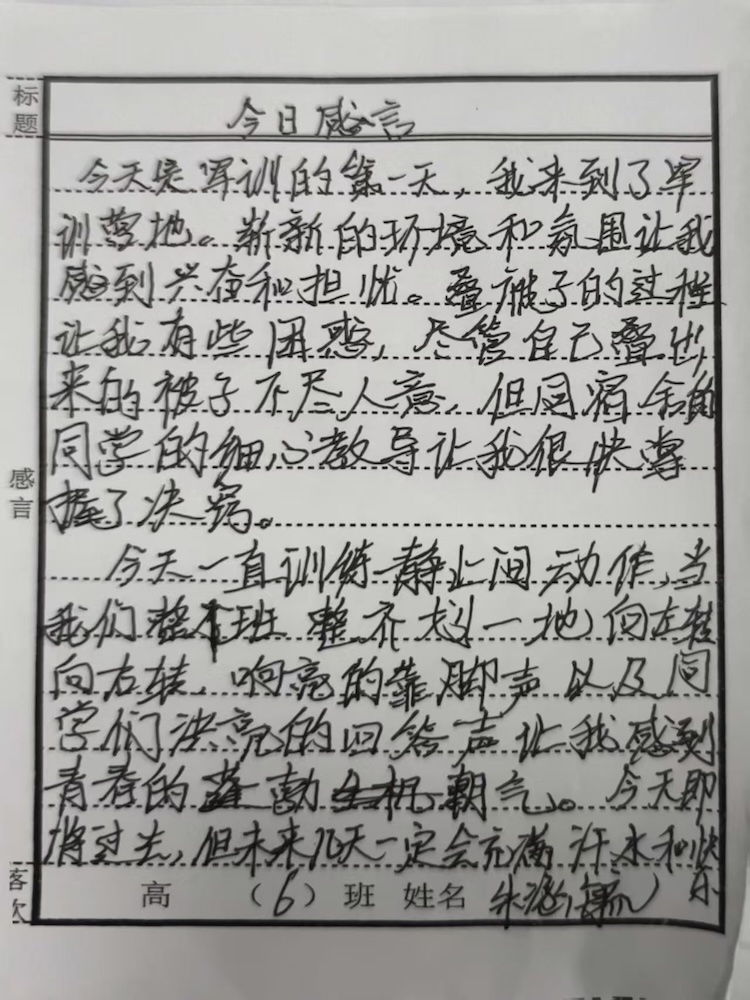 标题
今日感言
今天是军训的第一天，我来到了军
训营地。崭新的环境和氛围让我
感到兴奋和担忧。叠被子的过程
让我有些困惑，尽管自己叠出
来的被子不尽人意，但同宿舍的
同学的细心教导让我很快掌
感言
握了决窍。
今天一直训练静止间动作，当
我们整个班整齐划一地向左转
向右转，响亮的靠脚声以及同
学们洪亮的回答声让我感到
青春的蓬勃朝气。今天即
将过去，但未来几天一定会充满汗水和快
乐
落款
高（6）班 姓名 朱